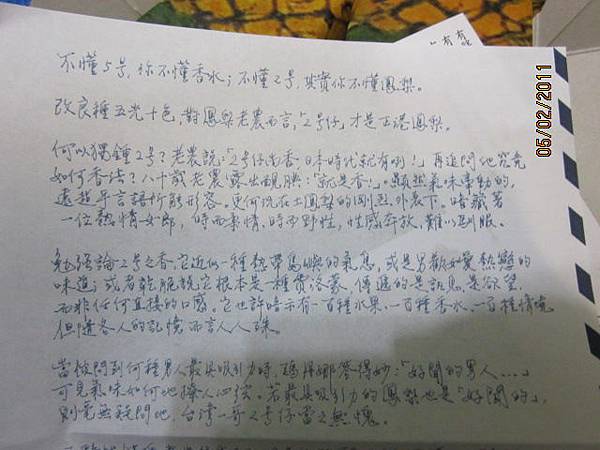 不懂5号，你不懂香水；不懂2号，其實你不懂鳳梨。
改良種五光十色，對鳳梨老農而言，「2号仔」才是正港鳳梨。
何以獨鍾2号？老農說：「2号仔尚香，日本時代就有啊！」再追問她究竟
如何香法？八十歲老農露出靦腆：「就是香！」。顯然氣味牽動的，
遠超乎言語所能形容。更何況在土鳳梨的剛烈外表下，暗藏著
一位熱情女郎，時而柔情，時而野性，性感奔放，難以馴服。
勉強論2号之香，它近似一種熱帶島嶼的氣息，或是男歡女愛熱戀的
味道；或者乾脆說它根本是一種費洛蒙，傳遞的是訊息，是欲望，
而非任何直接的口感。它也許暗示有一百種水果、一百種香水、一百種情境
但隨各人的記憶而言人人殊。
當被問到何種男人最具吸引力時，瑪丹娜答得妙：「好聞的男人……」
可見氣味如何地撩人心弦。若最具吸引力的鳳梨也是「好聞的」，
則毫無疑問地，台灣一哥2号仔當之無愧。
05/02/2011